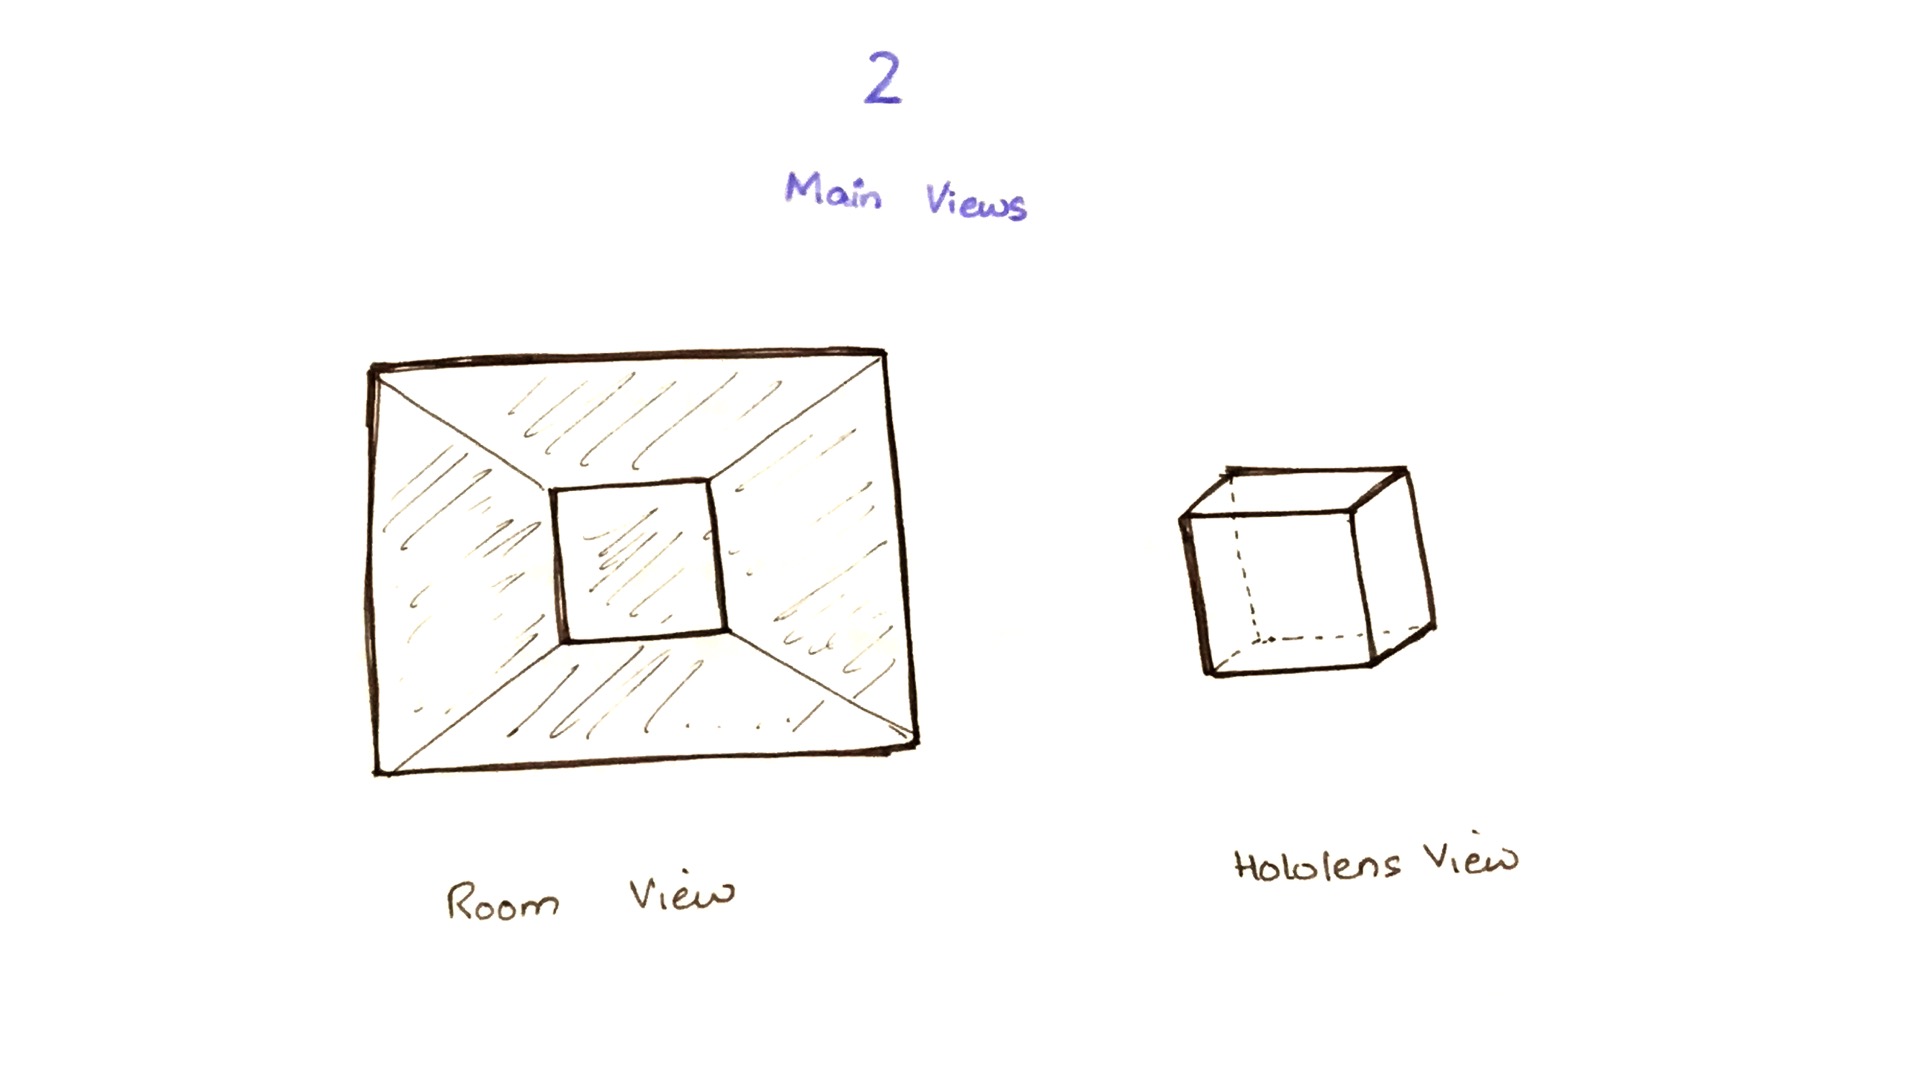 2
Main Views
Room View
Hololens View